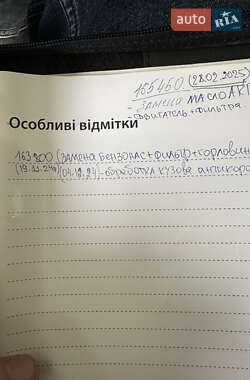 auto RIA
165450. (28.02.2025)
- Замена масло АКП
- сдвигатель + фильтра
Особливі відмітки
163 200 (замена бензонас + фильтр + горловин
(19.11.24) (04.12.24) - обработка кузова антикоро